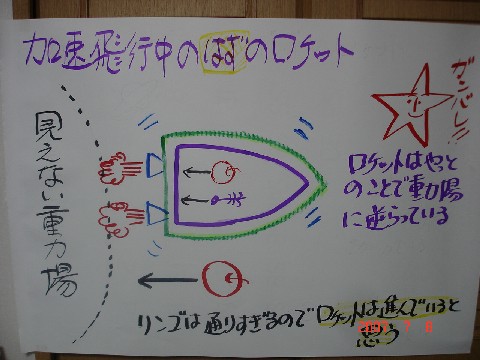 加速飛行中のはずのロケット
ガンバレ!!
見えない重力場
ロケットはやっと
のことで重力場
に逆らっている
リンゴは通りすぎるのでロケットは進んでいると
思う